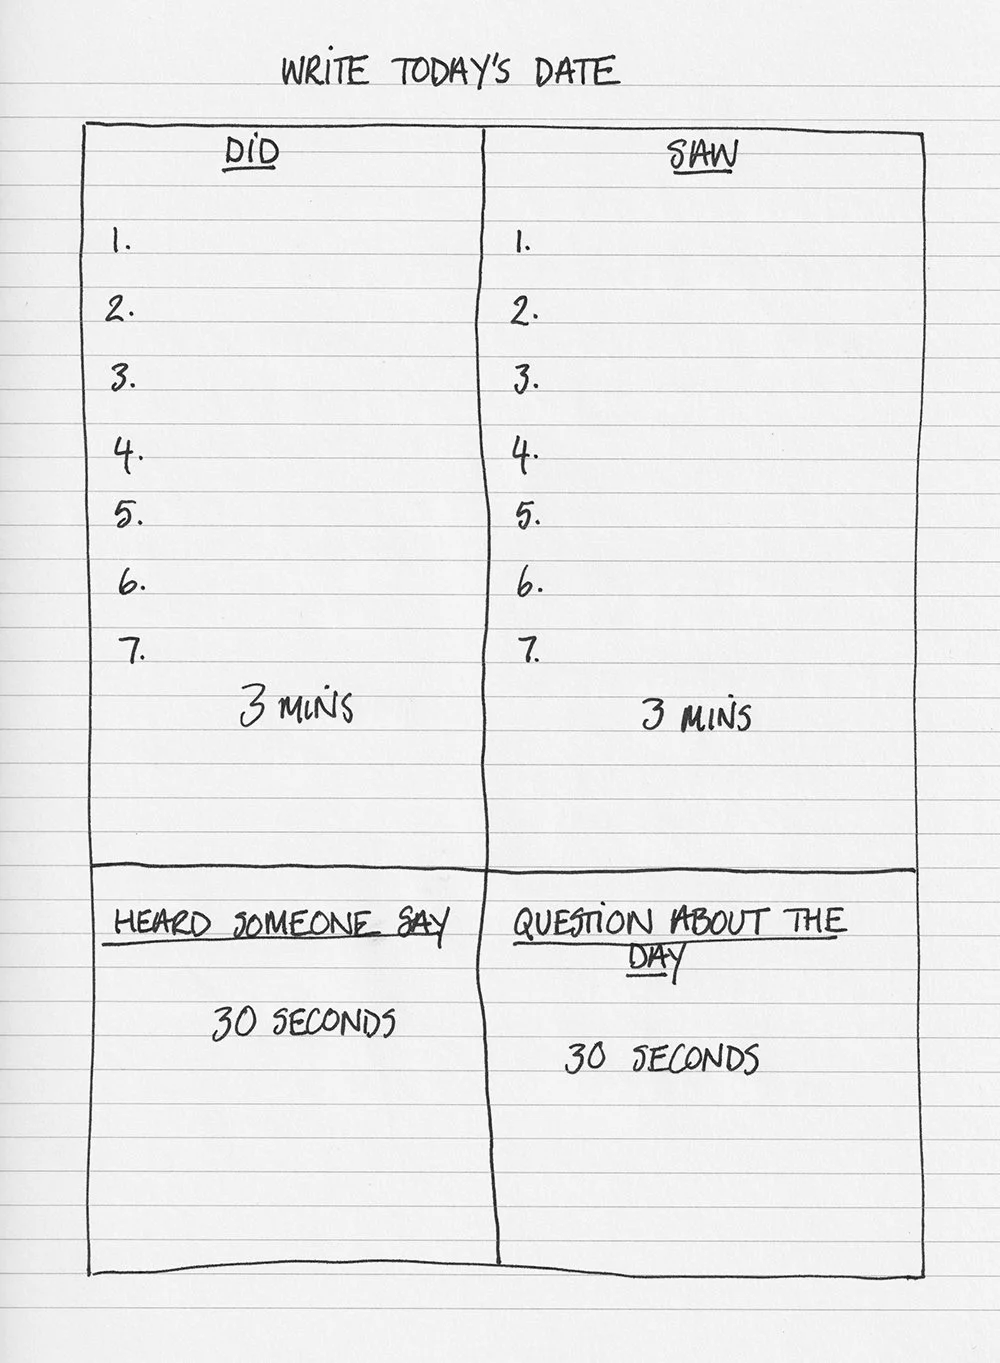 WRITE TODAY'S DATE
DID
1.
2.
3.
4.
5.
6.
7.
3 MINS
SAW
1.
2.
3.
4.
5.
6.
7.
3 MINS
HEARD SOMEONE SAY
30 SECONDS
QUESTION ABOUT THE
DAY
30 SECONDS